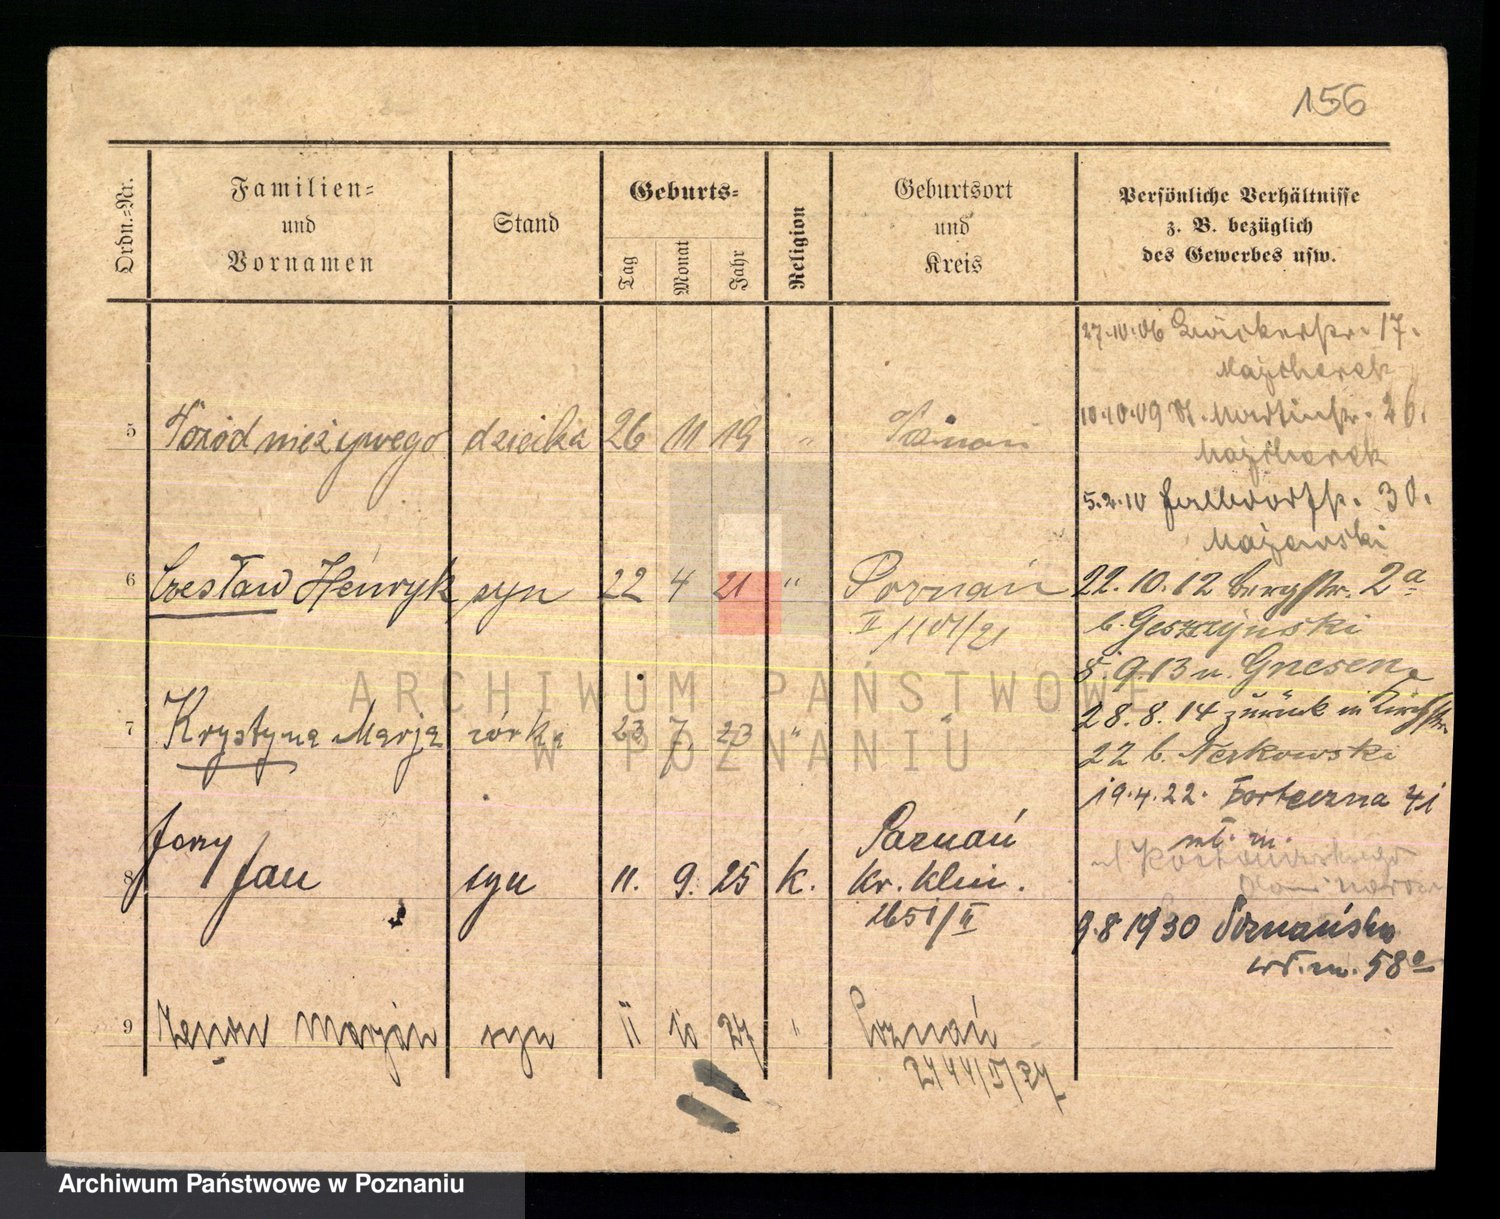 156
Ordn.-Nr.
Familien-
und
Vornamen
Stand
Geburts-
Tag
Monat
Jahr
Religion
Geburtsort
und
Kreis
Persönliche Verhältnisse
z. B. bezüglich
des Gewerbes usw.
5 nieżywego dziecka 26 11 19 "
6 Czesław Henryk syn 22 4 21 " Poznań
II 1101/21
7 Krystyna Marja córka 23 7. 23 "
Jerzy
8 Jan syn 11. 9. 25 k.
Poznań
kr. klin.
2651/II
9 Zenon Marjan syn 11 10 27 " Poznań
27.10.06 17.
10.10.09 St. Martinstr. 26.
5.2.10 30.
Majewski
22.10.12 Bergstr. 2a
b.
5.9.13 n. Gnesen
28.8.14 zurück in
22 b.
19.4.22. Forteczna 41
wł. m.
9.8 1930 Poznańska
wł. m. 58a
ARCHIWUM PAŃSTWOWE
W POZNANIU
Archiwum Państwowe w Poznaniu